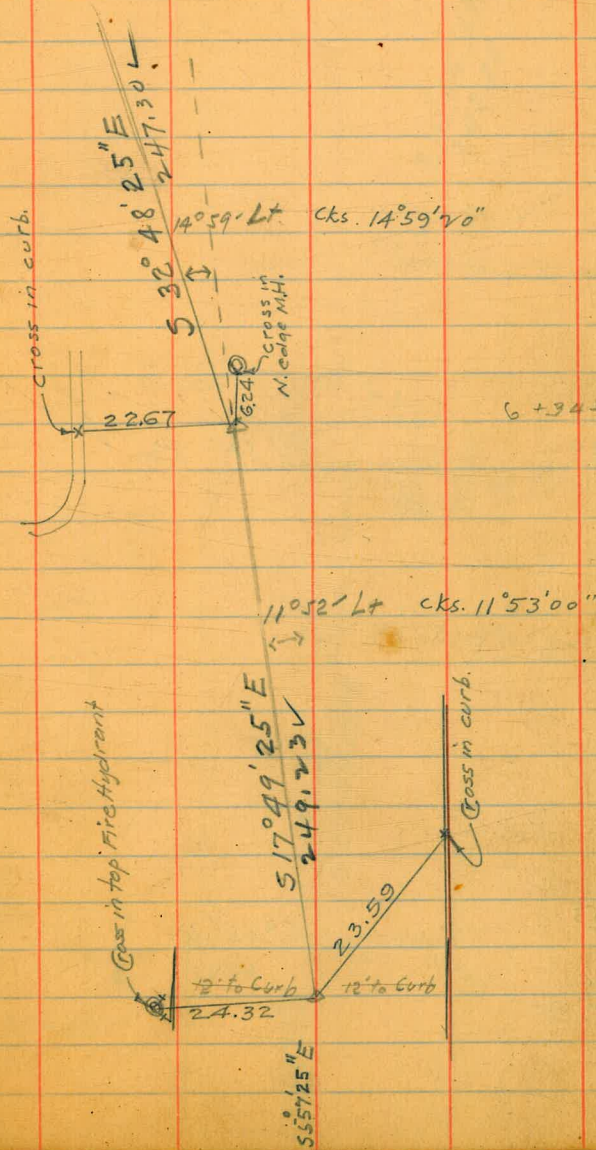 S 32° 48' 25" E
247.30
14°59' Lt. Cks. 14°59'20"
cross in curb.
cross in
N. edge M.H.
6.24
22.67
6 +34
11°52' Lt Cks. 11°53'00"
S 17° 49' 25" E
249.23
Cross in top Fire Hydrant
Cross in curb.
23.59
12' to Curb 12' to Curb
24.32
S5°57'25"E